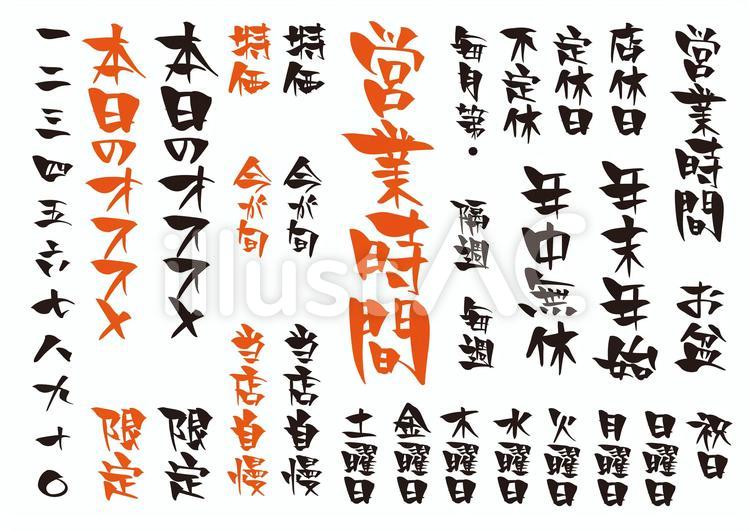 営業時間
お盆
祝日
店休日
定休日
不定休
毎月第・
年末年始
年中無休
隔週
毎週
日曜日
月曜日
火曜日
水曜日
木曜日
金曜日
土曜日
営業時間
特価
特価
今が旬
今が旬
当店自慢
当店自慢
本日のオススメ
本日のオススメ
限定
限定
一二三四五六七八九十〇
illustAC